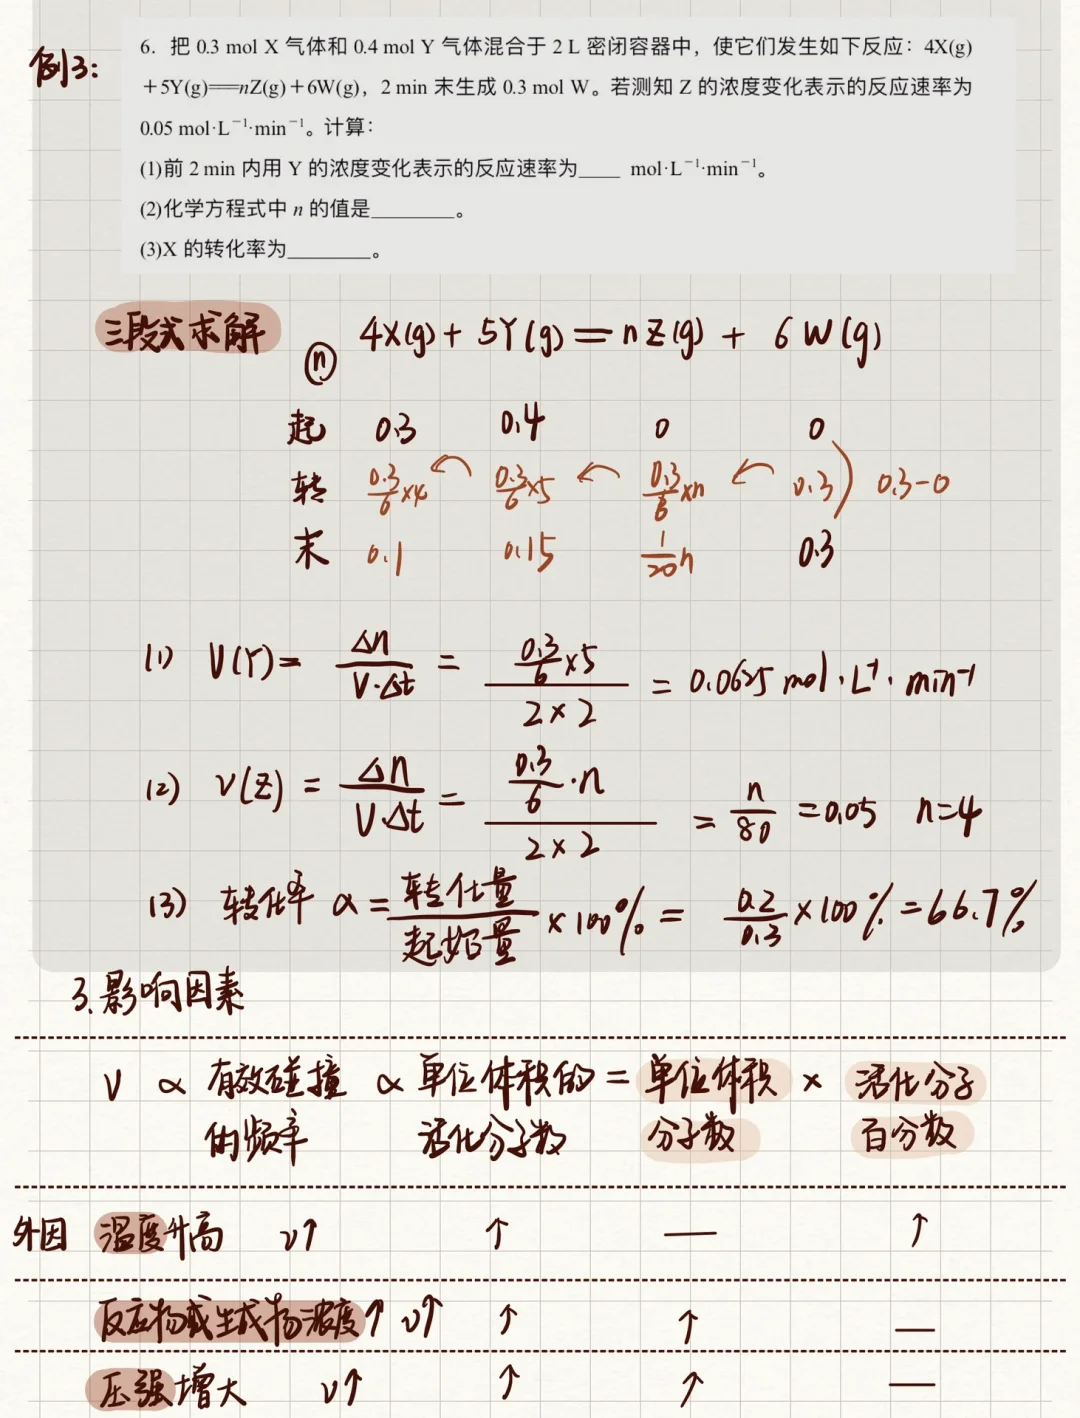 例3:
6. 把 0.3 mol X 气体和 0.4 mol Y 气体混合于 2 L 密闭容器中，使它们发生如下反应：4X(g)
＋5Y(g)══nZ(g)＋6W(g)，2 min 末生成 0.3 mol W。若测知 Z 的浓度变化表示的反应速率为
0.05 mol·L⁻¹·min⁻¹。计算：
(1)前 2 min 内用 Y 的浓度变化表示的反应速率为____ mol·L⁻¹·min⁻¹。
(2)化学方程式中 n 的值是________。
(3)X 的转化率为________。
三段式求解
4X(g) + 5Y(g) = nZ(g) + 6W(g)
ⓝ
起 0.3 0.4 0 0
转 0.3/6×4 ← 0.3/6×5 ← 0.3/6×n ← 0.3) 0.3-0
末 0.1 0.15 1/20 n 0.3
(1) V(Y) = Δn/V·Δt = 0.3/6×5/2×2 = 0.0625 mol·L⁻¹·min⁻¹
(2) v(Z) = Δn/V·Δt = 0.3/6·n/2×2 = n/80 = 0.05 n=4
(3) 转化率 α = 转化量/起始量 ×100% = 0.2/0.3 ×100% = 66.7%
3.影响因素
v ∝ 有效碰撞 ∝ 单位体积的 = 单位体积 × 活化分子
的频率 活化分子数 分子数 百分数
外因 温度升高 v↑ ↑ — ↑
反应物或生成物浓度↑ v↑ ↑ ↑ —
压强增大 v↑ ↑ ↑ —